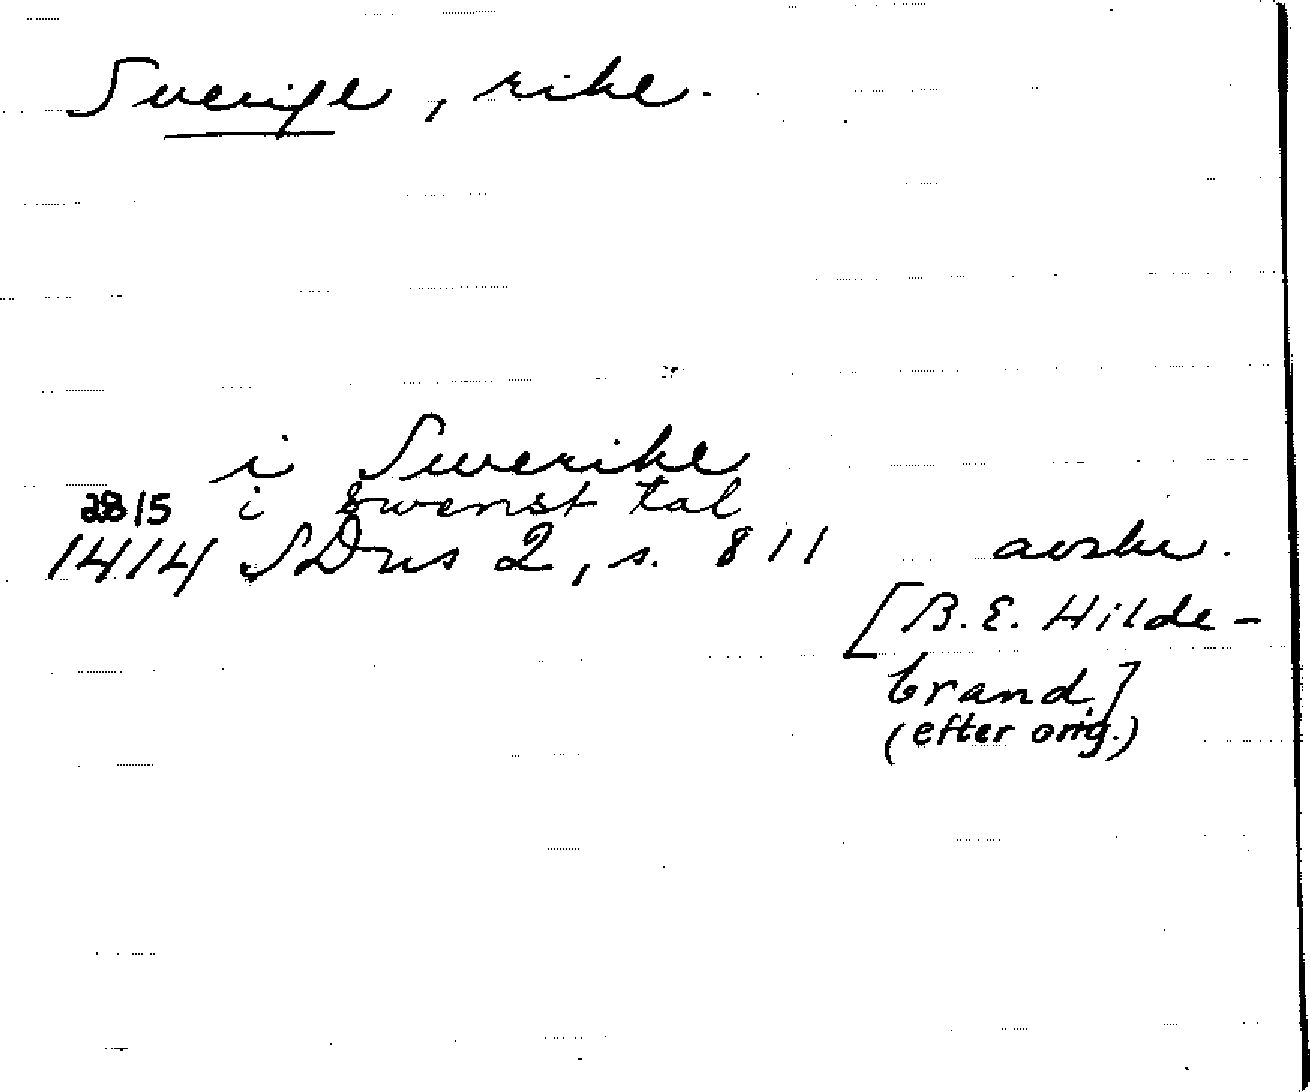 Sverige, rike.
i Swerike
28/5 i swenst tal
1414 SDns 2, s. 811 avskr.
[B.E. Hilde-
brand.]
(efter orig.)